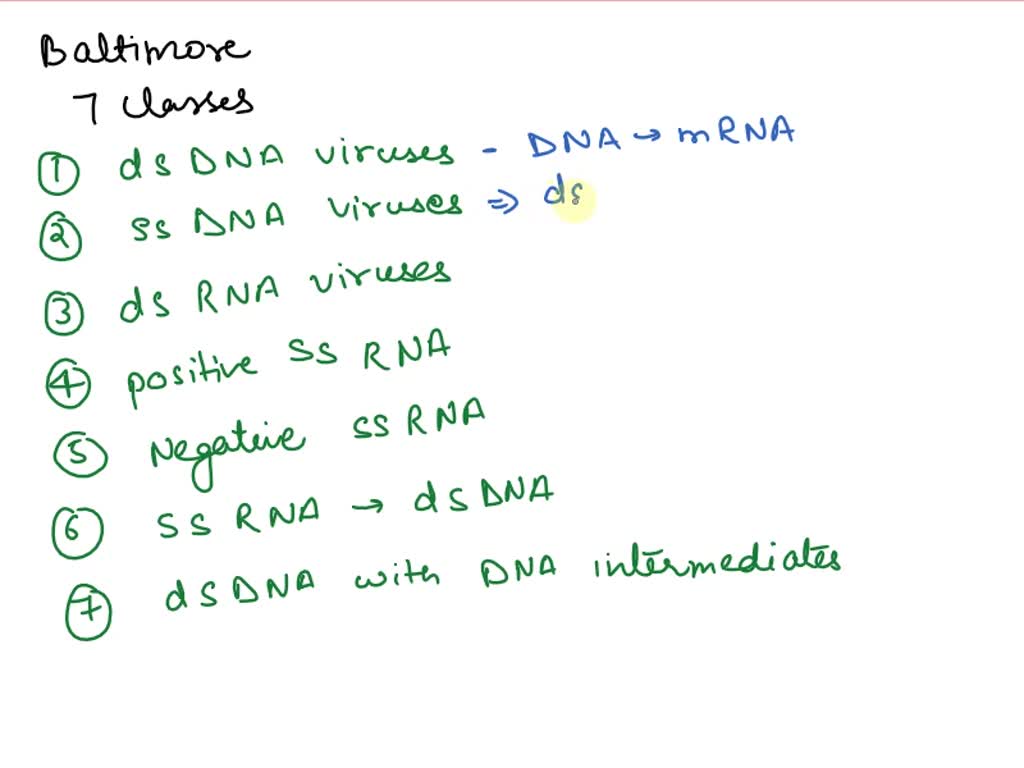 Baltimore
7 classes
① ds DNA viruses - DNA → mRNA
② ss DNA viruses ⇒ ds
③ ds RNA viruses
④ positive ss RNA
⑤ Negative ss RNA
⑥ ss RNA → ds DNA
⑦ ds DNA with DNA intermediates